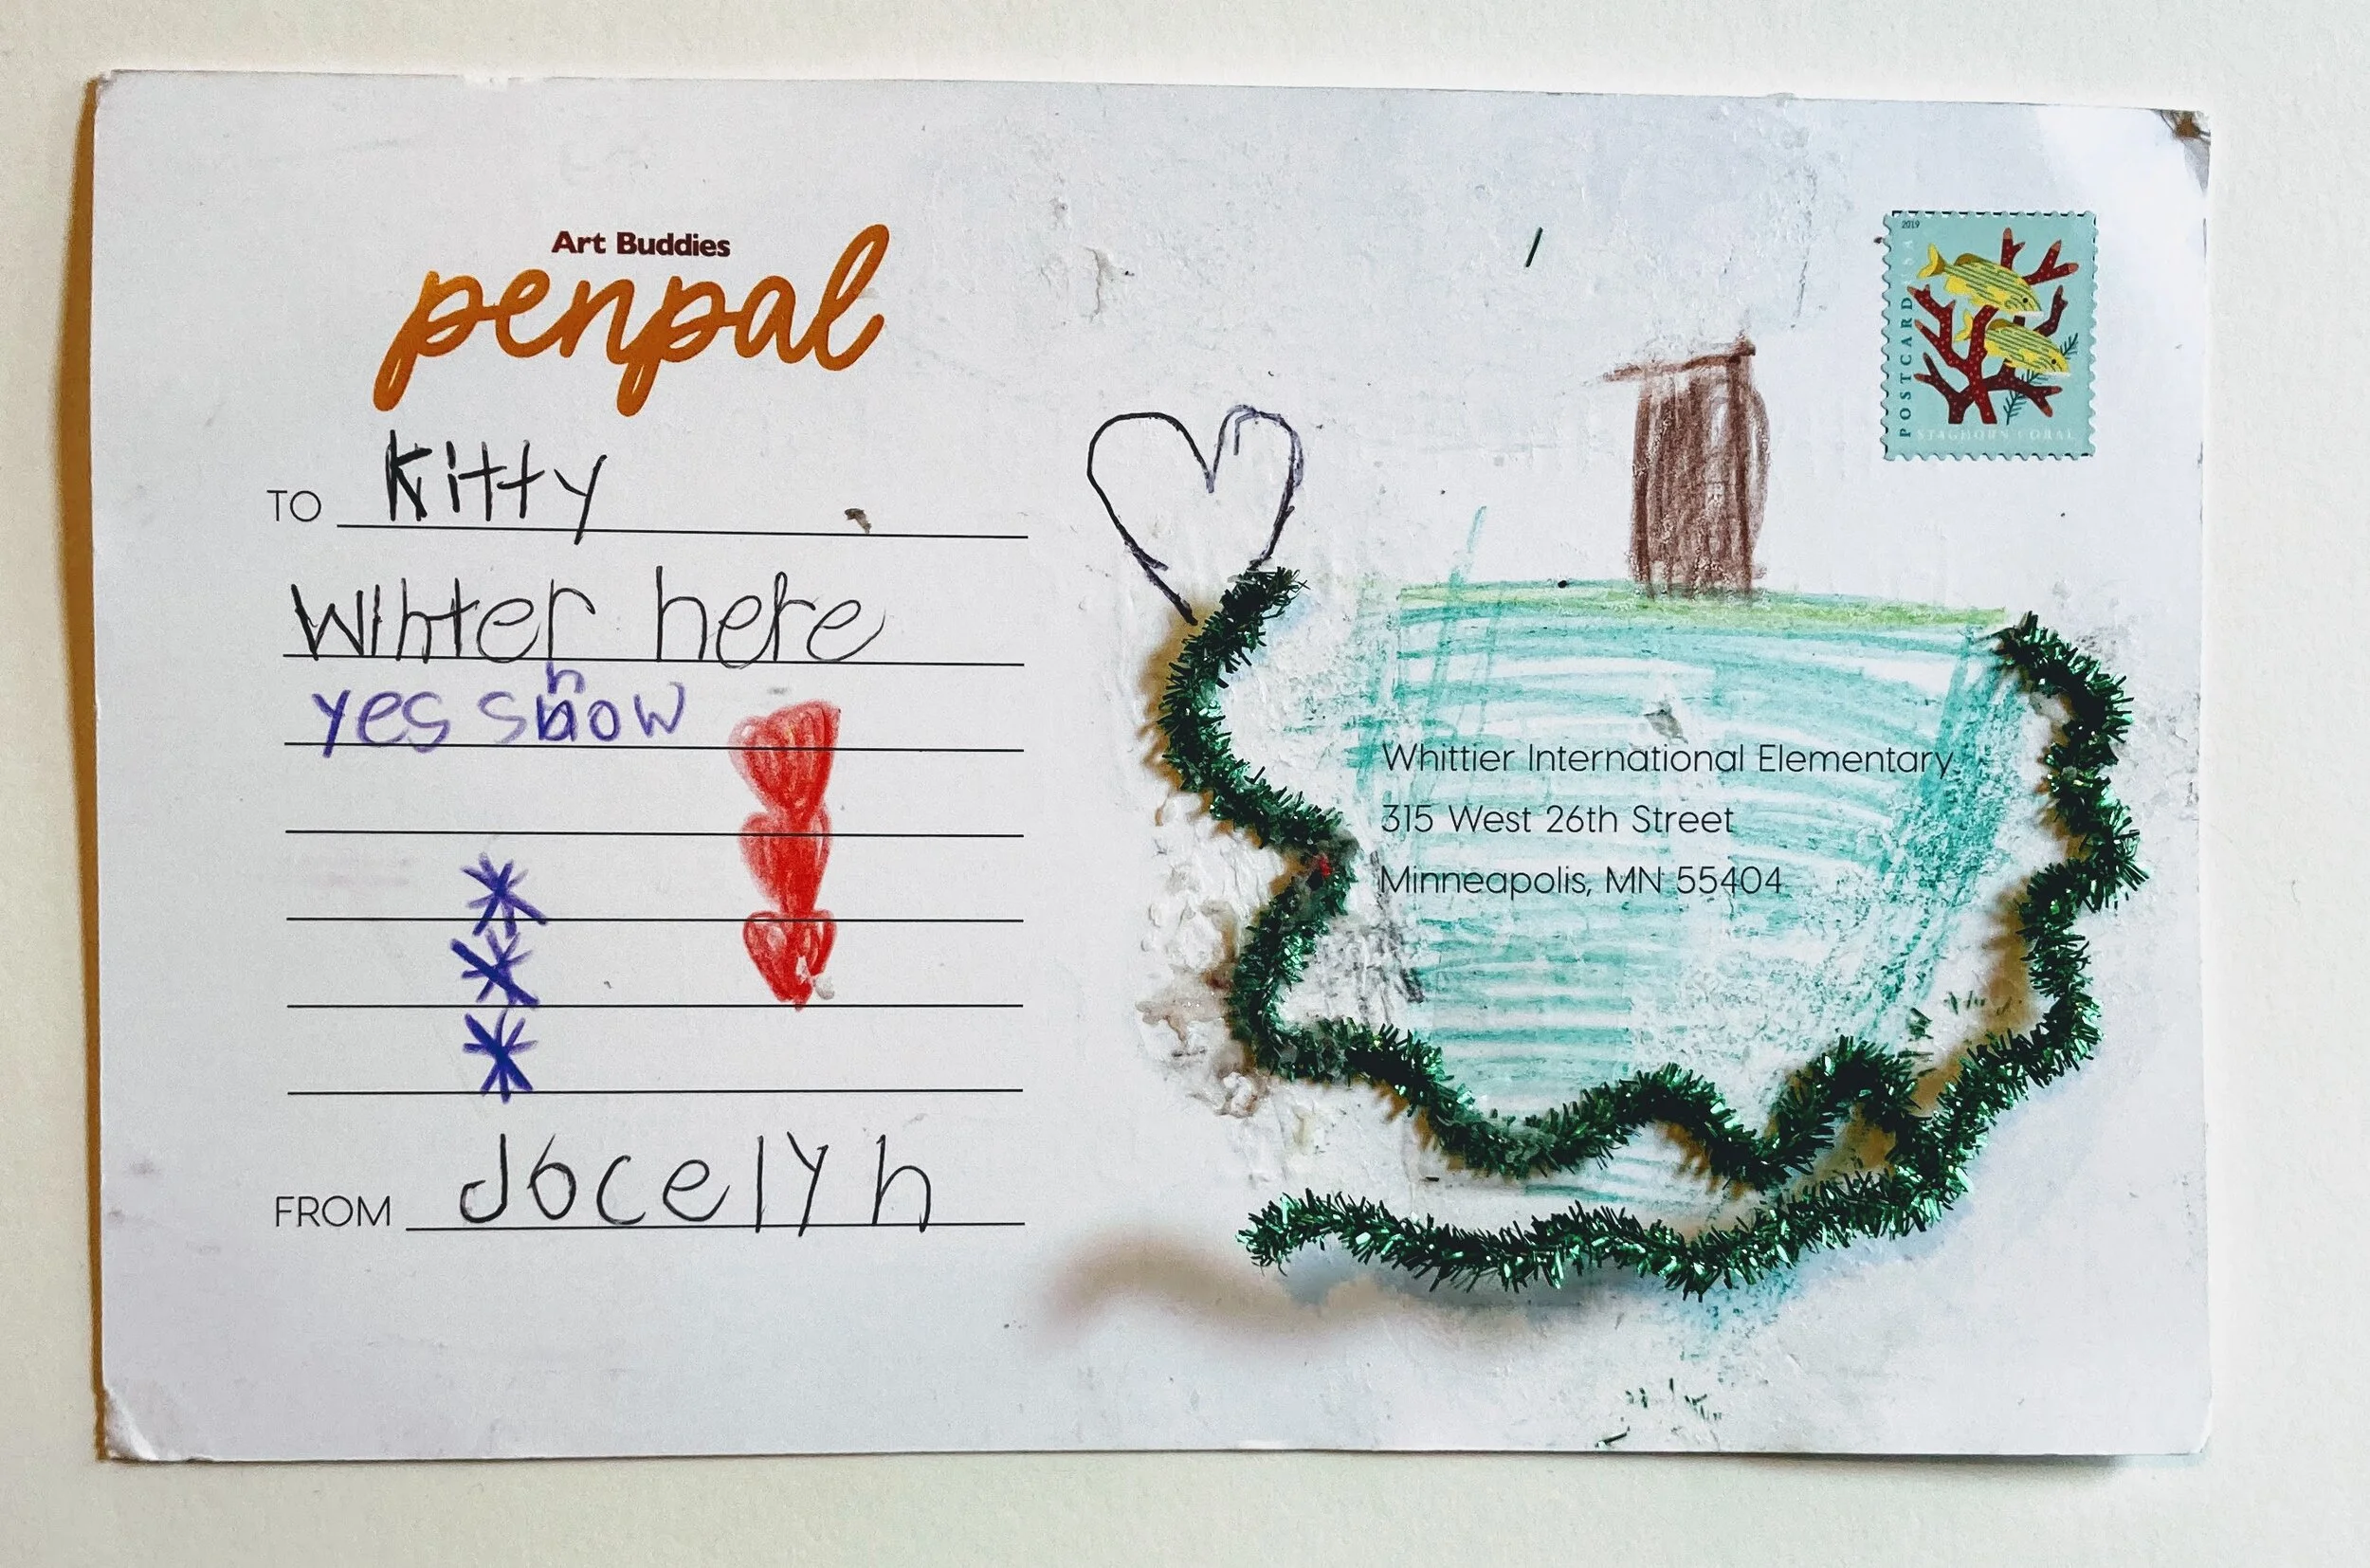 Art Buddies
penpal
TO Kitty
Winter here
yes snow
FROM Jocelyn
2019
USA
POSTCARD
STAGHORN CORAL
Whittier International Elementary
315 West 26th Street
Minneapolis, MN 55404